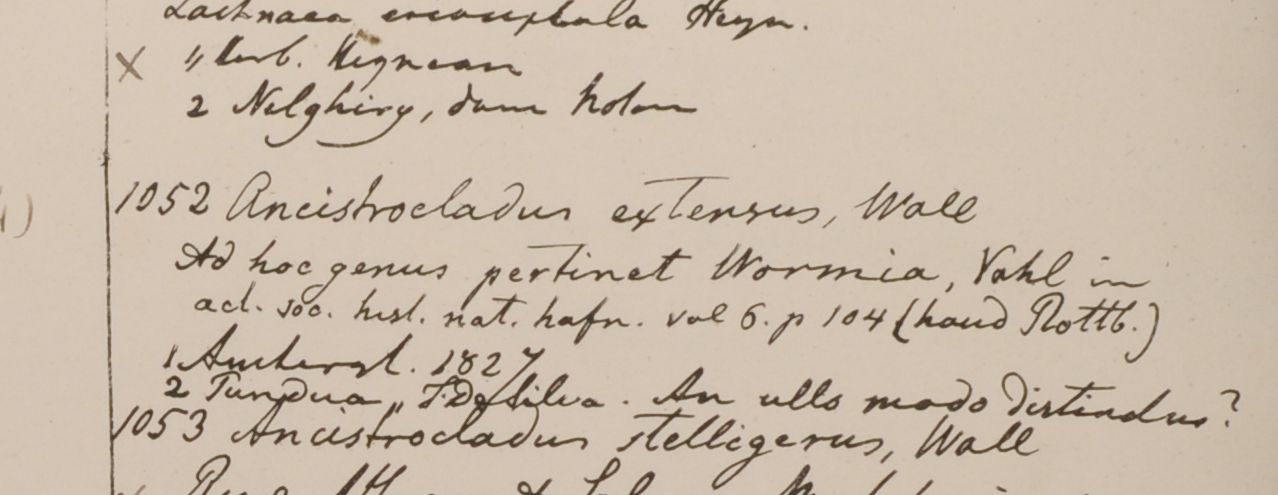 Lachnaea eriocephala Heyn.
X " Herb. Heynean
2 Nelghiry, dum Noton
1052 Ancistrocladus extensus, Wall
Ad hoc genus pertinet Wormia, Vahl in
act. soc. hist. nat. hafn. vol 6. p 104 (haud Rottb.)
1 Amherst. 1827
2 Tunpdua " F. De Silva. An ullo modo distinctus?
1053 Ancistrocladus stelligerus, Wall